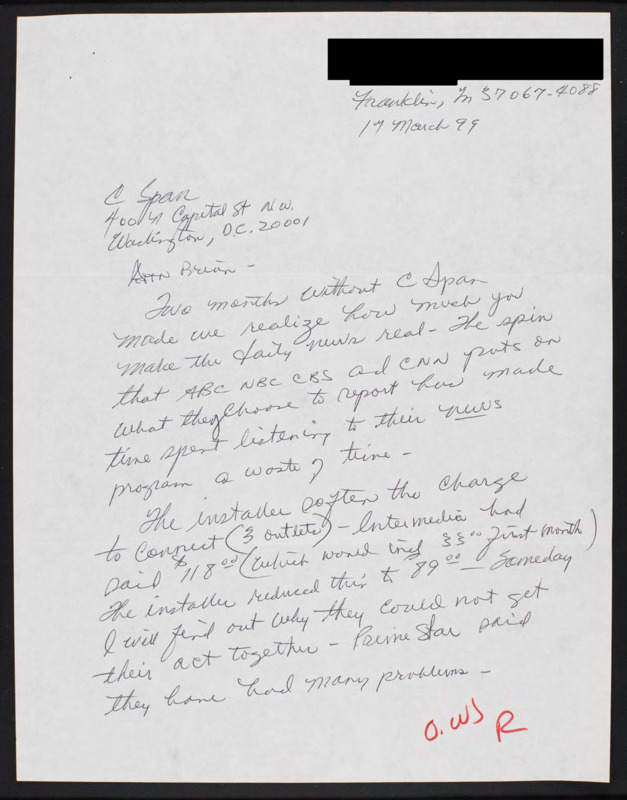 Franklin, Tn 37067-4088
17 March 99
C Span
400 N Capital St N.W.
Washington, D.C. 20001
Brian -
Two months without C Span
made me realize how much you
make the daily news real - The spin
that ABC NBC CBS and CNN puts on
what they choose to report has made
time spent listening to their news
program a waste of time -
The installer soften the charge
to connect (3 outlets) - Intermedia had
said $118.00 (which would incl 33.00 first month)
The installer reduced this to $89.00 - Someday
I will find out why they could not get
their act together - Prime Star said
they have had many problems -
O. WS
R